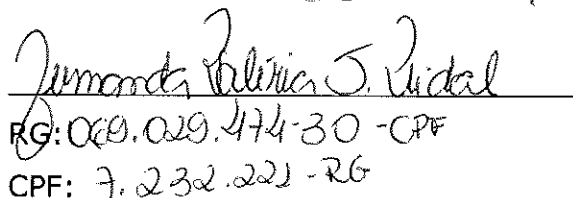 Fernanda Valéria J. Vidal
RG: 069.029.474-30 - CPF
CPF: 7.232.221 - RG